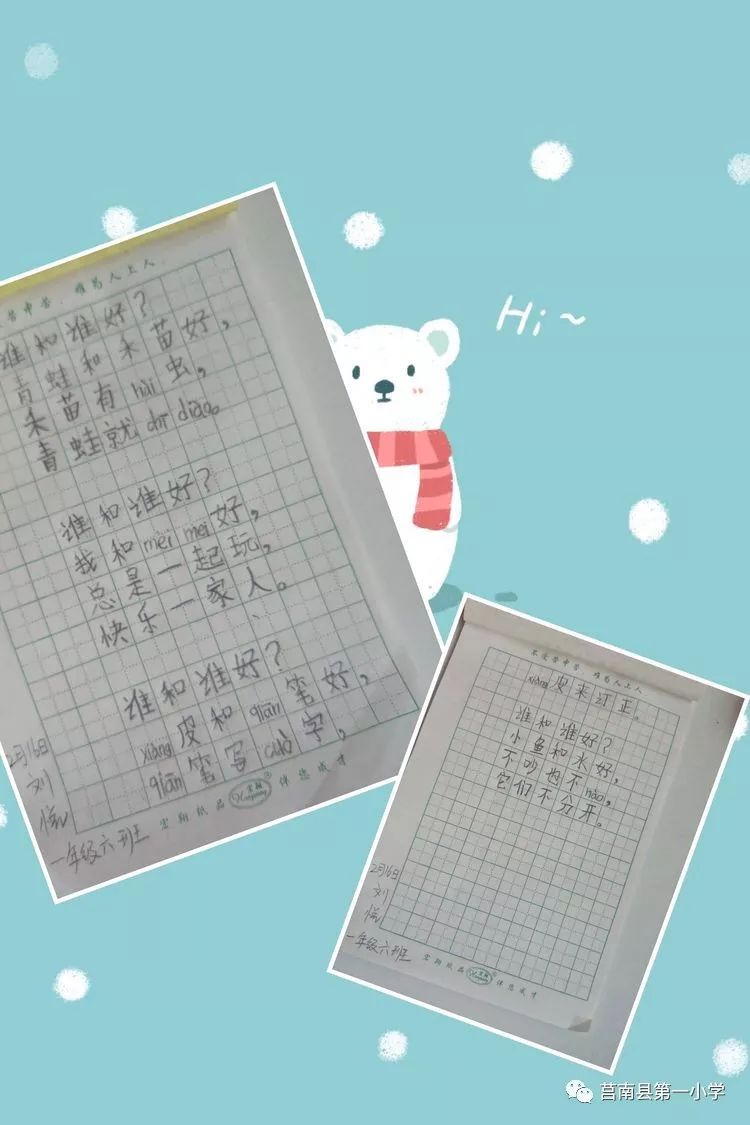 Hi~
不受苦中苦，难为人上人
谁和谁好？
青蛙和禾苗好，
禾苗有hài虫，
青蛙就chī diào。
谁和谁好？
我和mèi mei好，
总是一起玩，
快乐一家人。
谁和谁好？
xiàng皮和qiān笔好，
qiān笔写cuò字，
宏翔纸品
伴您成才
2月16日
刘
一年级六班
不受苦中苦 难为人上人
xiàng皮来订正。
谁和谁好？
小鱼和水好，
不吵也不nào，
它们不分开。
2月16日
刘
一年级六班
宏翔纸品
伴您成才
莒南县第一小学